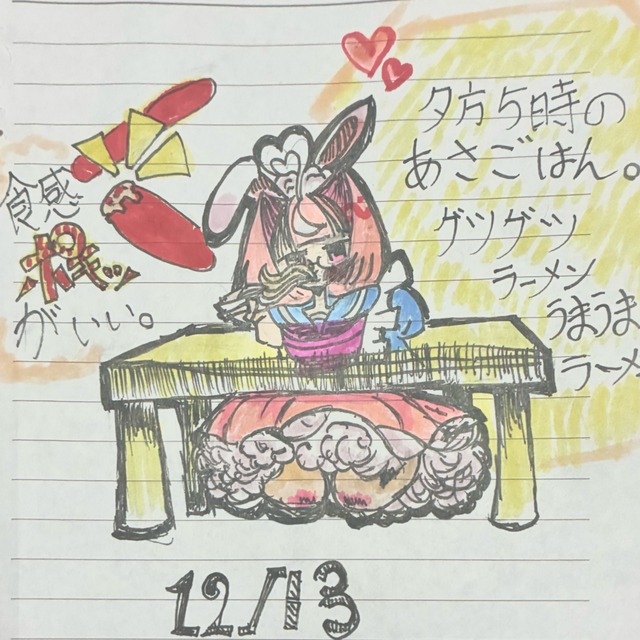 夕方5時の
あさごはん。
グツグツ
ラーメン
うまうま
ラーメ
食感
が
いい。
12/13